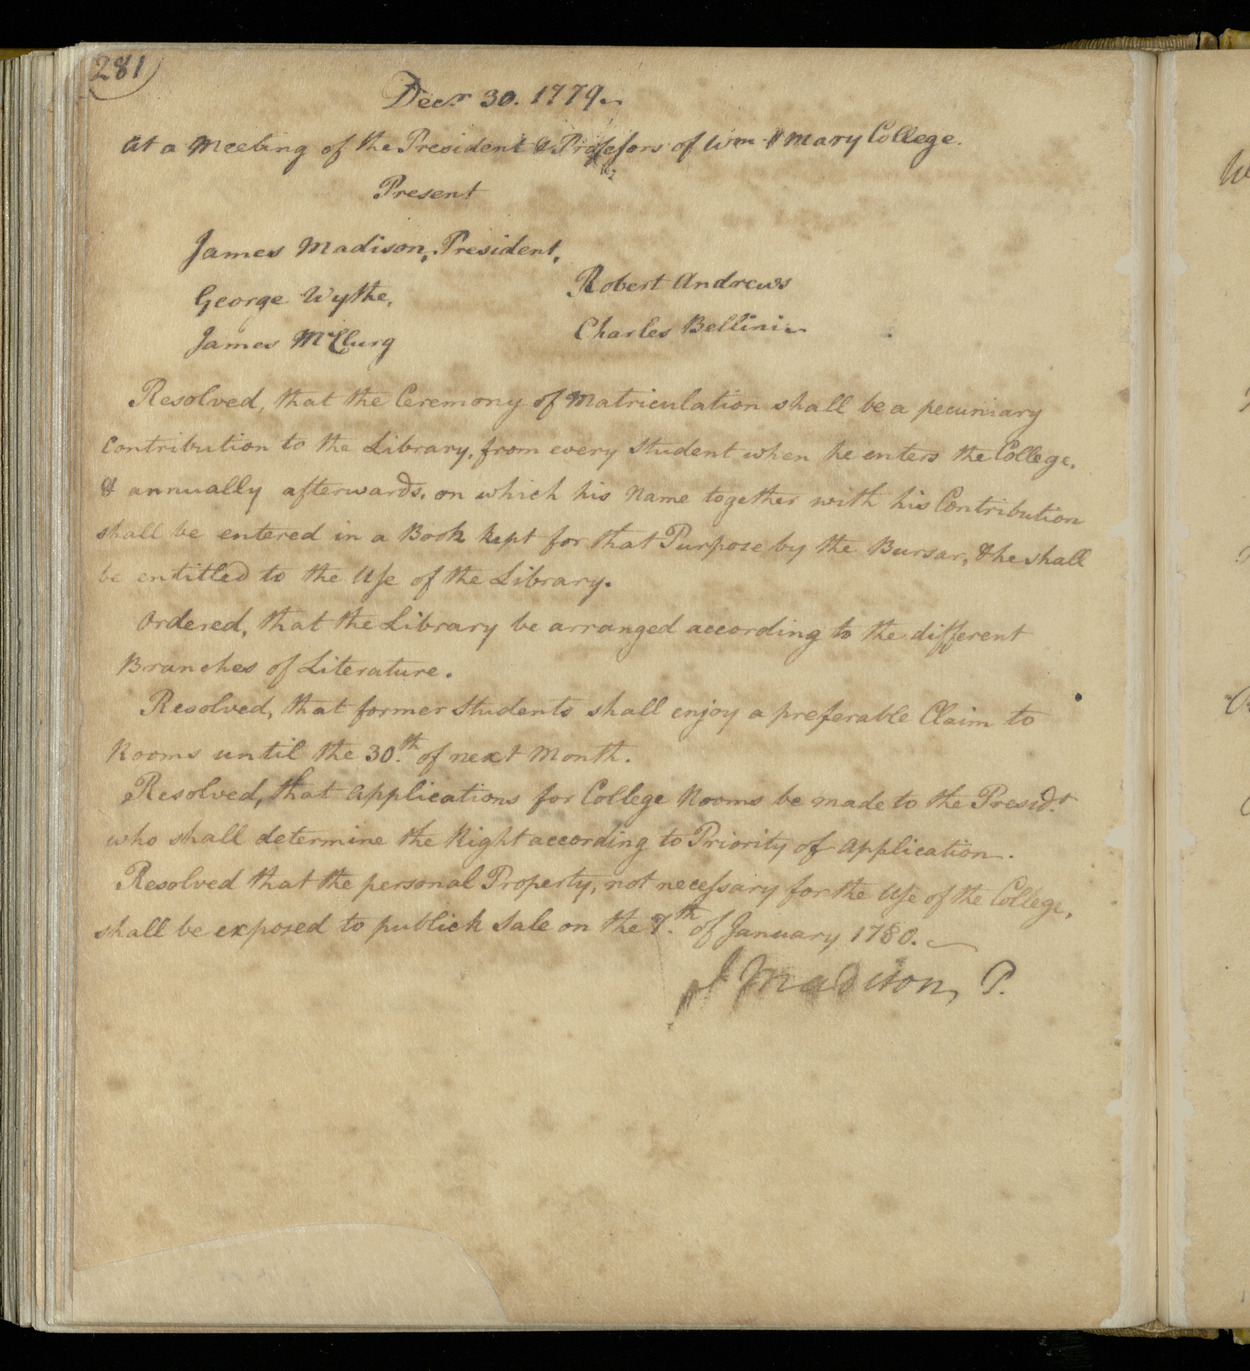 281
Decr 30. 1779.
At a Meeting of the President & Professors of Wm & Mary College.
Present
James Madison, President,
George Wythe,
James McClurg
Robert Andrews
Charles Bellini
Resolved, that the Ceremony of Matriculation shall be a pecuniary
Contribution to the Library, from every Student when he enters the College,
& annually afterwards, on which his Name together with his Contribution
shall be entered in a Book kept for that Purpose by the Bursar, & he shall
be entitled to the Use of the Library.
Ordered, that the Library be arranged according to the different
Branches of Literature.
Resolved, that former Students shall enjoy a preferable Claim to
Rooms until the 30.th of next Month.
Resolved, that Applications for College Rooms be made to the Presidt.
who shall determine the Right according to Priority of Application.
Resolved that the personal Property, not necessary for the Use of the College,
shall be exposed to publick Sale on the th of January 1780.
J Madison, P.